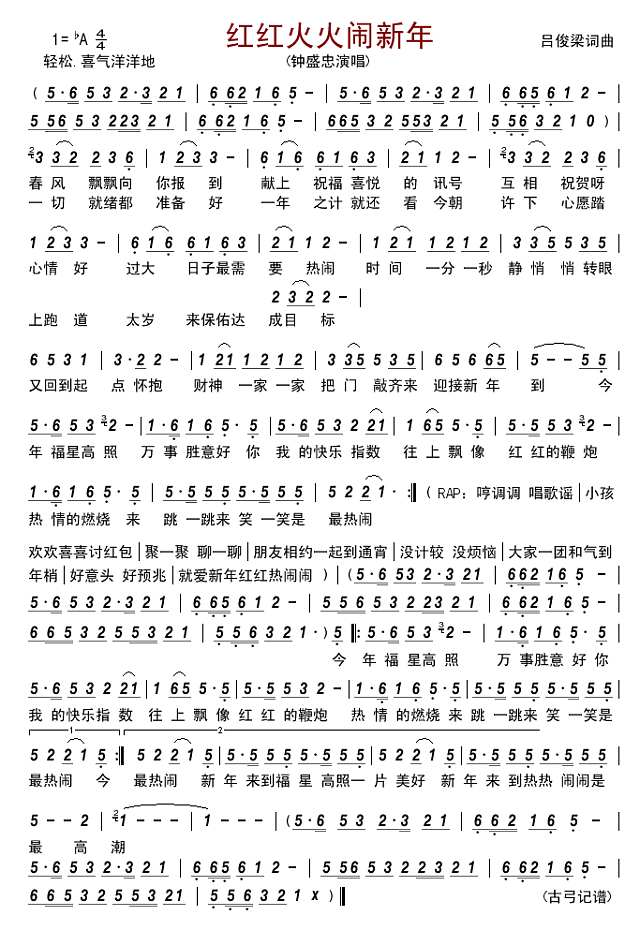 红红火火闹新年
1=♭A 4/4
吕俊梁词曲
轻松.喜气洋洋地
(钟盛忠演唱)
( 5·6 5 3 2·3 2 1 | 6 6 2 1 6 5 - | 5·6 5 3 2·3 2 1 | 6 6 5 6 1 2 - |
5 5 6 5 3 2 2 3 2 1 | 6 6 2 1 6 5 - | 6 6 5 3 2 5 5 3 2 1 | 5 5 6 3 2 1 0 ) |
2 3 3 2 2 3 6 | 1 2 3 3 - | 6 1 6 6 1 6 3 | 2 1 1 2 - | 2 3 3 2 2 3 6 |
春风 飘飘向 你报 到 献上 祝福 喜悦 的 讯号 互相 祝贺呀
一切 就绪都 准备 好 一年 之计 就还 看 今朝 许下 心愿踏
1 2 3 3 - | 6 1 6 6 1 6 3 | 2 1 1 2 - | 2 2 1 1 2 1 2 | 3 3 5 5 3 5
心情 好 过大 日子最需 要 热闹 时间 一分 一秒 静悄 悄转眼
2 3 2 2 - |
上跑 道 太岁 来保佑达 成目 标
6 5 3 1 | 3·2 2 - | 1 2 1 1 2 1 2 | 3 3 5 5 3 5 | 6 5 6 6 5 | 5 - - 5 5 |
又回到起 点怀抱 财神 一家 一家 把门 敲齐来 迎接新年 到 今
5·6 5 3 2 - | 1·6 1 6 5·5 | 5·6 5 3 2 3 2 1 | 1 6 5 5·5 | 5·6 5 3 2 - |
年 福星高 照 万 事 胜意好 你 我 的快乐 指数 往 上 飘 像 红 红的鞭 炮
1·6 1 6 5·5 | 5·5 5 5 5·5 5 5 | 5 2 2 1 · :‖ ( RAP: 哼调调 唱歌谣 | 小孩
热 情的燃烧 来 跳 一跳来 笑 一笑是 最热闹
欢欢喜喜讨红包 | 聚一聚 聊一聊 | 朋友相约一起到通宵 | 没计较 没烦恼 | 大家一团和气到
年梢 | 好意头 好预兆 | 就爱新年红红热闹闹 ) | ( 5·6 5 3 2·3 2 1 | 6 6 2 1 6 5 - |
5·6 5 3 2·3 2 1 | 6 6 5 6 1 2 - | 5 5 6 5 3 2 2 3 2 1 | 6 6 2 1 6 5 - |
6 6 5 3 2 5 5 3 2 1 | 5 5 6 3 2 1 · ) 5 ‖: 5·6 5 3 2 - | 1·6 1 6 5·5 |
今 年 福 星高 照 万 事胜意 好 你
5·6 5 3 2 3 2 1 | 1 6 5 5·5 | 5·6 5 3 2 - | 1·6 1 6 5·5 | 5·5 5 5 5·5 5 5 |
我 的快乐指 数 往 上 飘 像 红 红 的鞭炮 热 情 的燃烧 来 跳 一跳来 笑 一笑是
1.
2.
5 2 2 1 5 :‖ 5 2 2 1 5 | 5 2 2 1 5 | 5·5 5 5 5·5 5 5 | 5 2 2 1 5 | 5·5 5 5 5 5 5 5 |
最热闹 今 最热闹 新 年 来到福 星 高照一 片 美好 新 年 来 到热热 闹闹是
5 - - 2 | 2 1 - - - | 1 - - - | ( 5·6 5 3 2·3 2 1 | 6 6 2 1 6 5 - |
最 高 潮
5·6 5 3 2·3 2 1 | 6 6 5 6 1 2 - | 5 5 6 5 3 2 2 3 2 1 | 6 6 2 1 6 5 - |
6 6 5 3 2 5 5 3 2 1 | 5 5 6 3 2 1 X ) ‖
(古弓记谱)